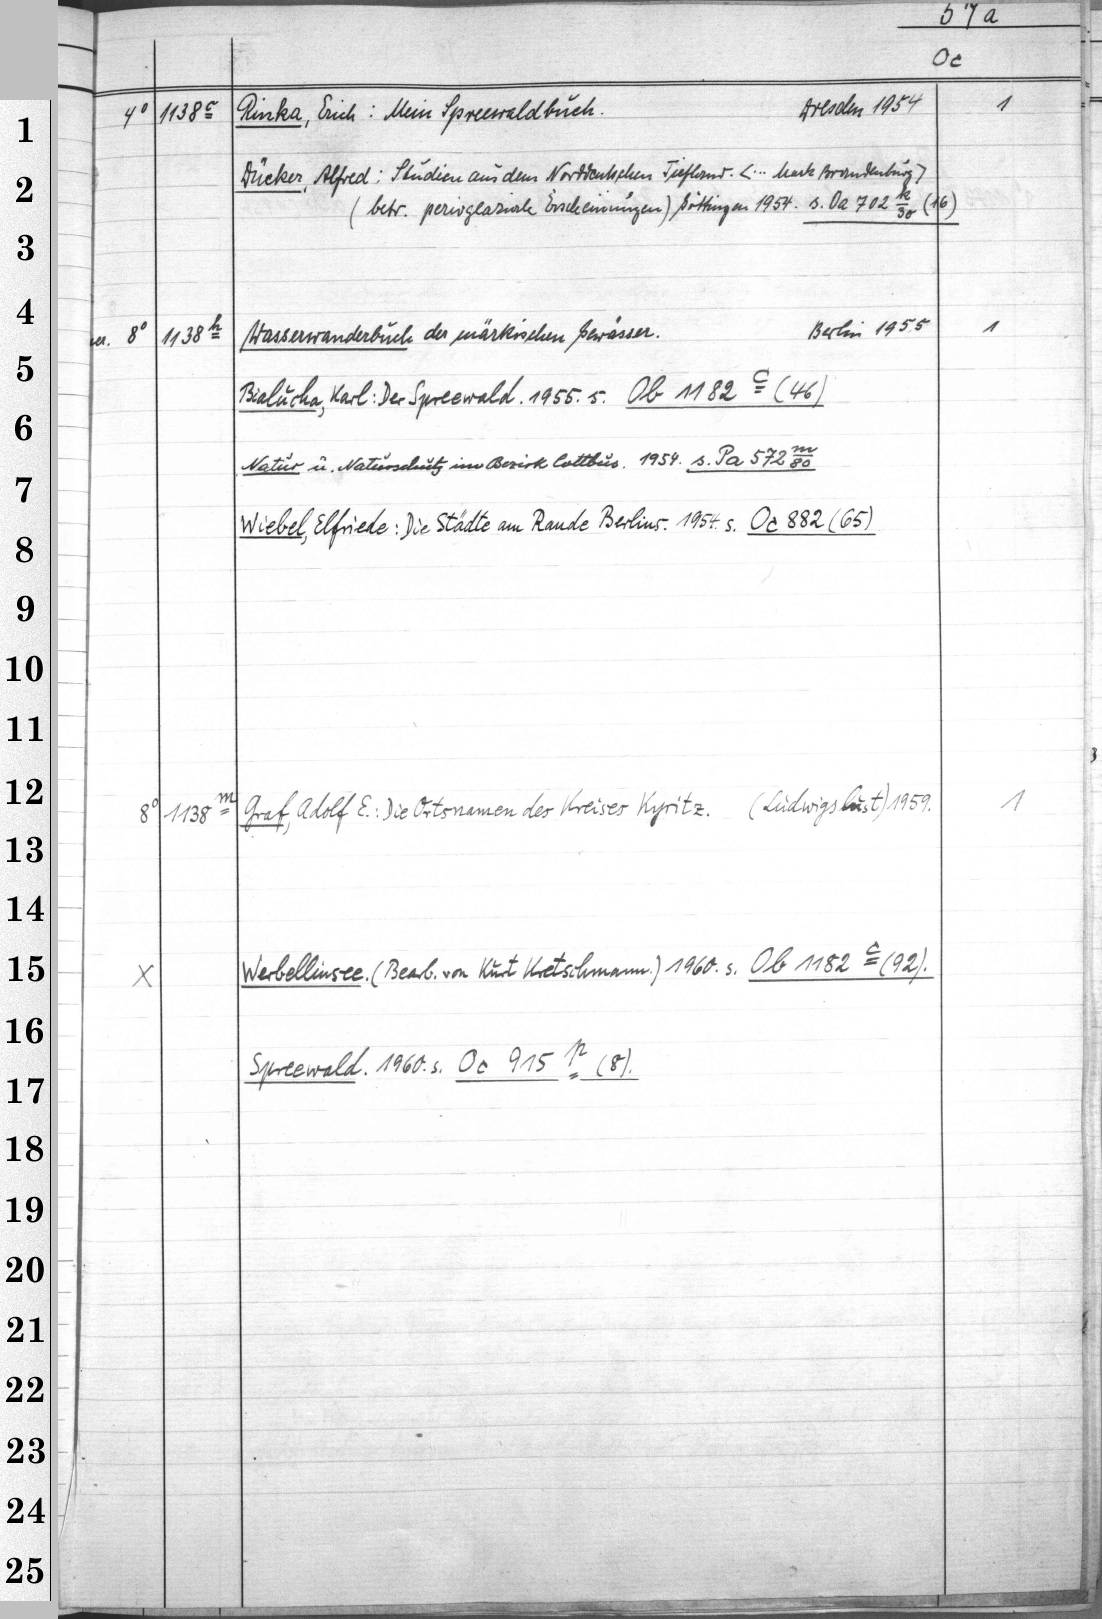 57a
Oc
4° 1138 c Rinka, Erich: Mein Spreewaldbuch. Dresden 1954 1
Dücker, Alfred: Studien aus dem Norddeutschen Tiefland. <... Mark Brandenburg>
(betr. periglaziale Erscheinungen) Göttingen 1954. s. Oa 702 k/30 (16)
8° 1138 h Wasserwanderbuch der märkischen Gewässer. Berlin 1955 1
Bialucha, Karl: Der Spreewald. 1955. s. Ob 1182 c (46)
Natur u. Naturschutz im Bezirk Cottbus. 1954. s. Pa 572 m/80
Wiebel, Elfriede: Die Städte am Rande Berlins. 1954. s. Oc 882 (65)
8° 1138 m Graf, Adolf E.: Die Ortsnamen des Kreises Kyritz. (Ludwigslust) 1959. 1
X Werbellinsee. (Bearb. von Kurt Kretschmann.) 1960. s. Ob 1182 c (92).
Spreewald. 1960. s. Oc 915 p (8).
1
2
3
4
5
6
7
8
9
10
11
12
13
14
15
16
17
18
19
20
21
22
23
24
25